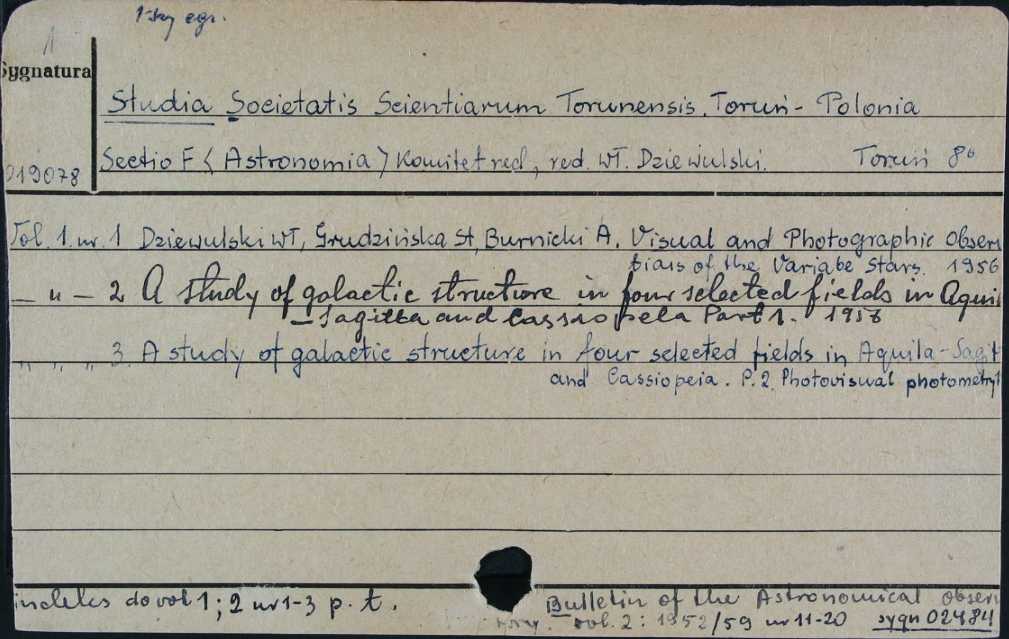 1-szy egz.
1
Sygnatura
Studia Societatis Scientiarum Torunensis. Toruń - Polonia
Sectio F < Astronomia > Komitet red, red. Wł. Dziewulski. Toruń 8°
019078
Vol. 1. nr. 1 Dziewulski Wł, Grudzińska St, Burnicki A. Visual and Photographic Observ
tions of the Variabe Stars. 1956
— " — 2 A study of galactic structure in four selected fields in Aqui
- Sagitta and Cassiopeia Part 1. 1956
" " " 3. A study of galactic structure in four selected fields in Aquila-Sagit
and Cassiopeia. P. 2. Photovisual photometry
indeks do vol 1; 2 nr 1-3 p. t.
Bulletin of the Astronomical Observ
tory. vol. 2: 1952/59 nr 11-20 sygn 02484